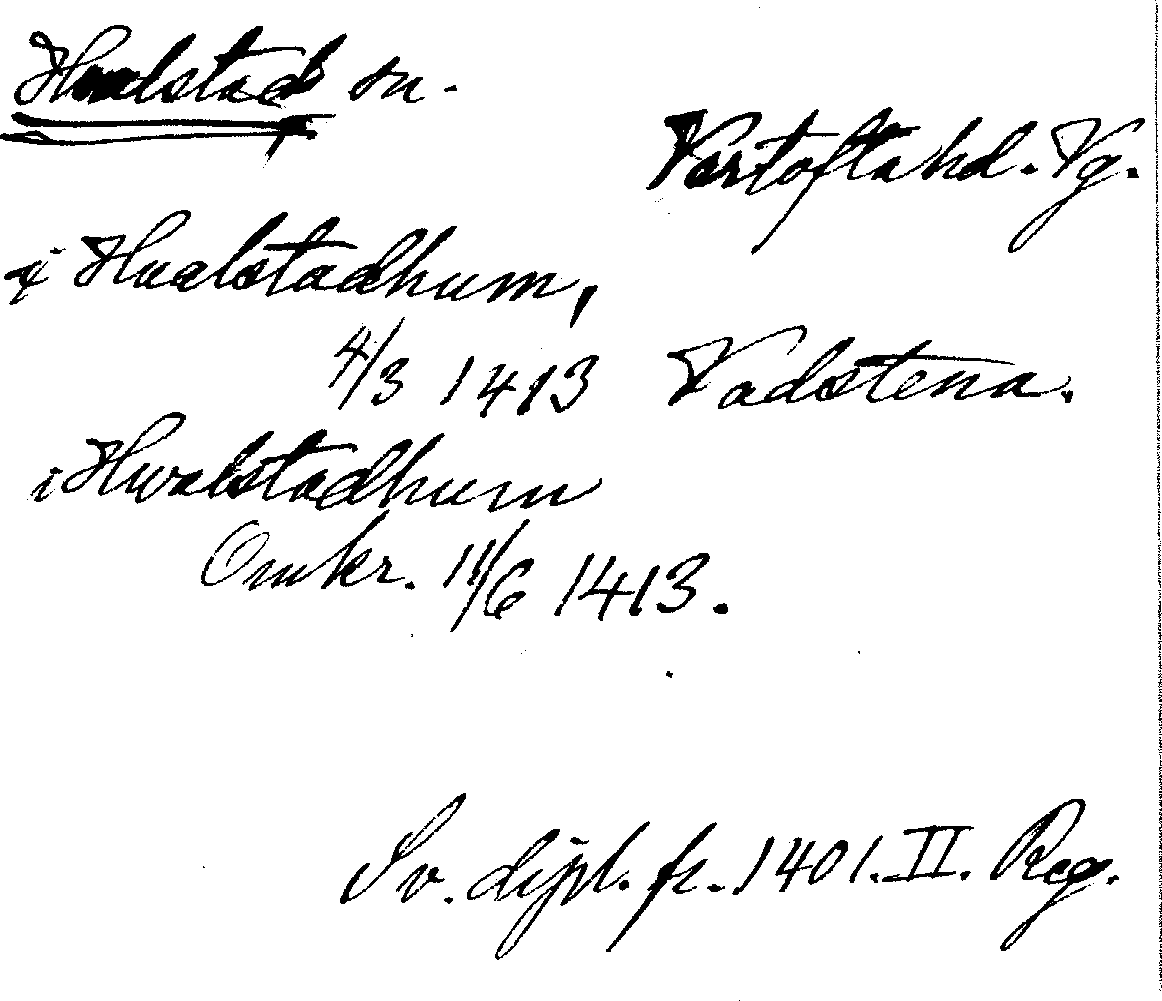 Hvalstad sn.
Vartofta hd. Vg.
i Hualstadhum,
4/3 1413 Vadstena.
i Hwalstadhum
Omkr. 11/6 1413.
Sv. dipl. fr. 1401. II. Reg.